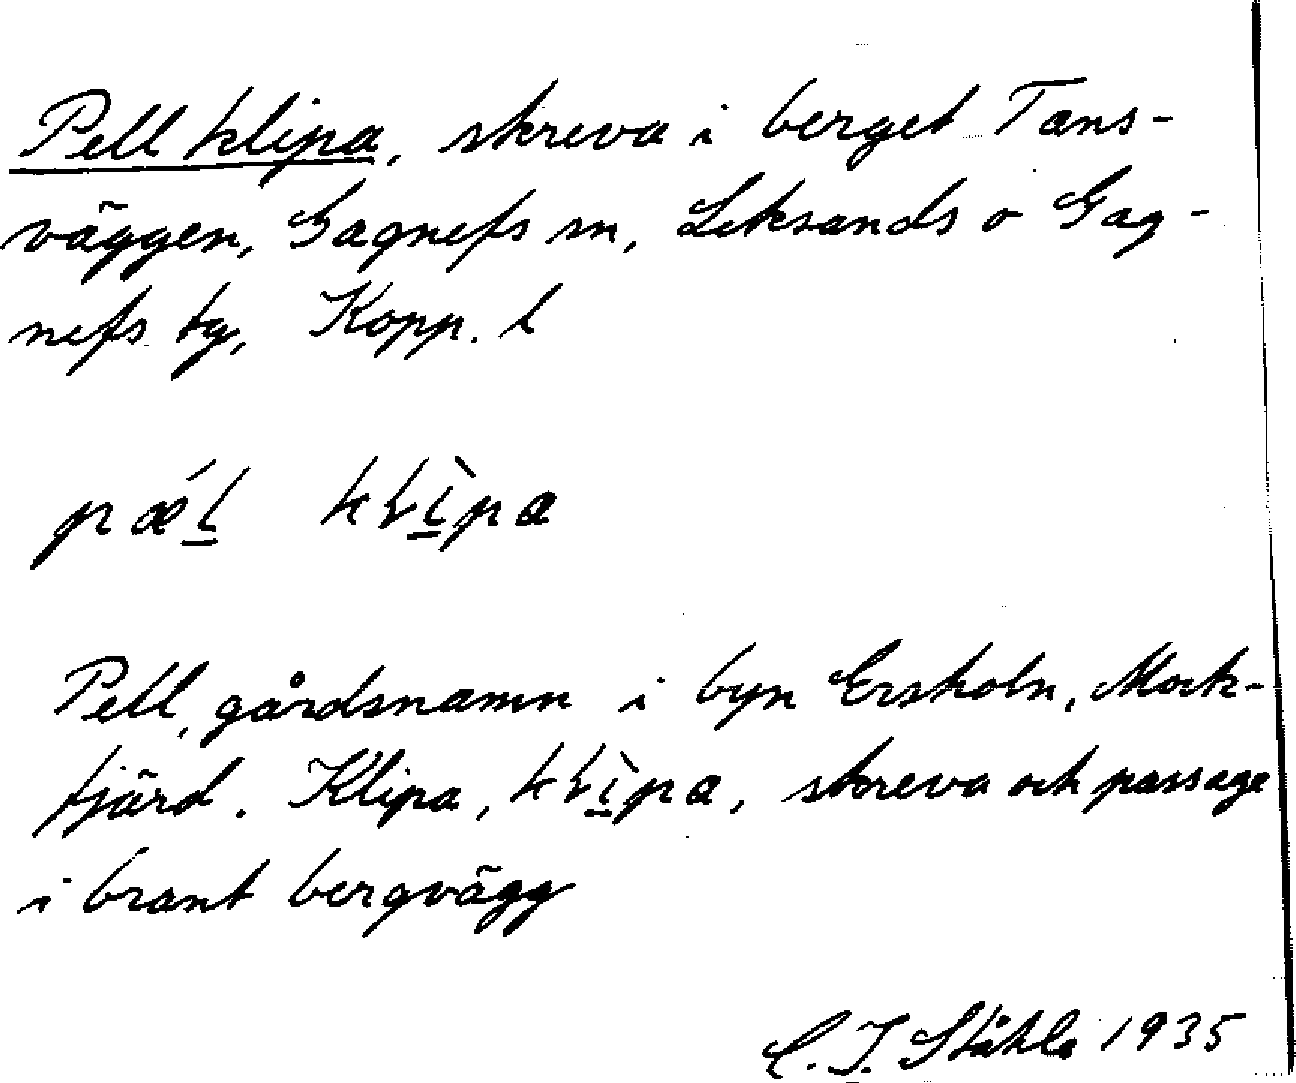 Pell klipa, skreva i berget Tans-
väggen, Gagnefs sn, Leksands o Gag-
nefs tg, Kopp. l
pǽl klìpa
Pell, gårdsnamn i byn Ersholn, Mock-
fjärd. Klipa, klìpa, skreva och passage
i brant bergvägg
C. I. Ståhle 1935